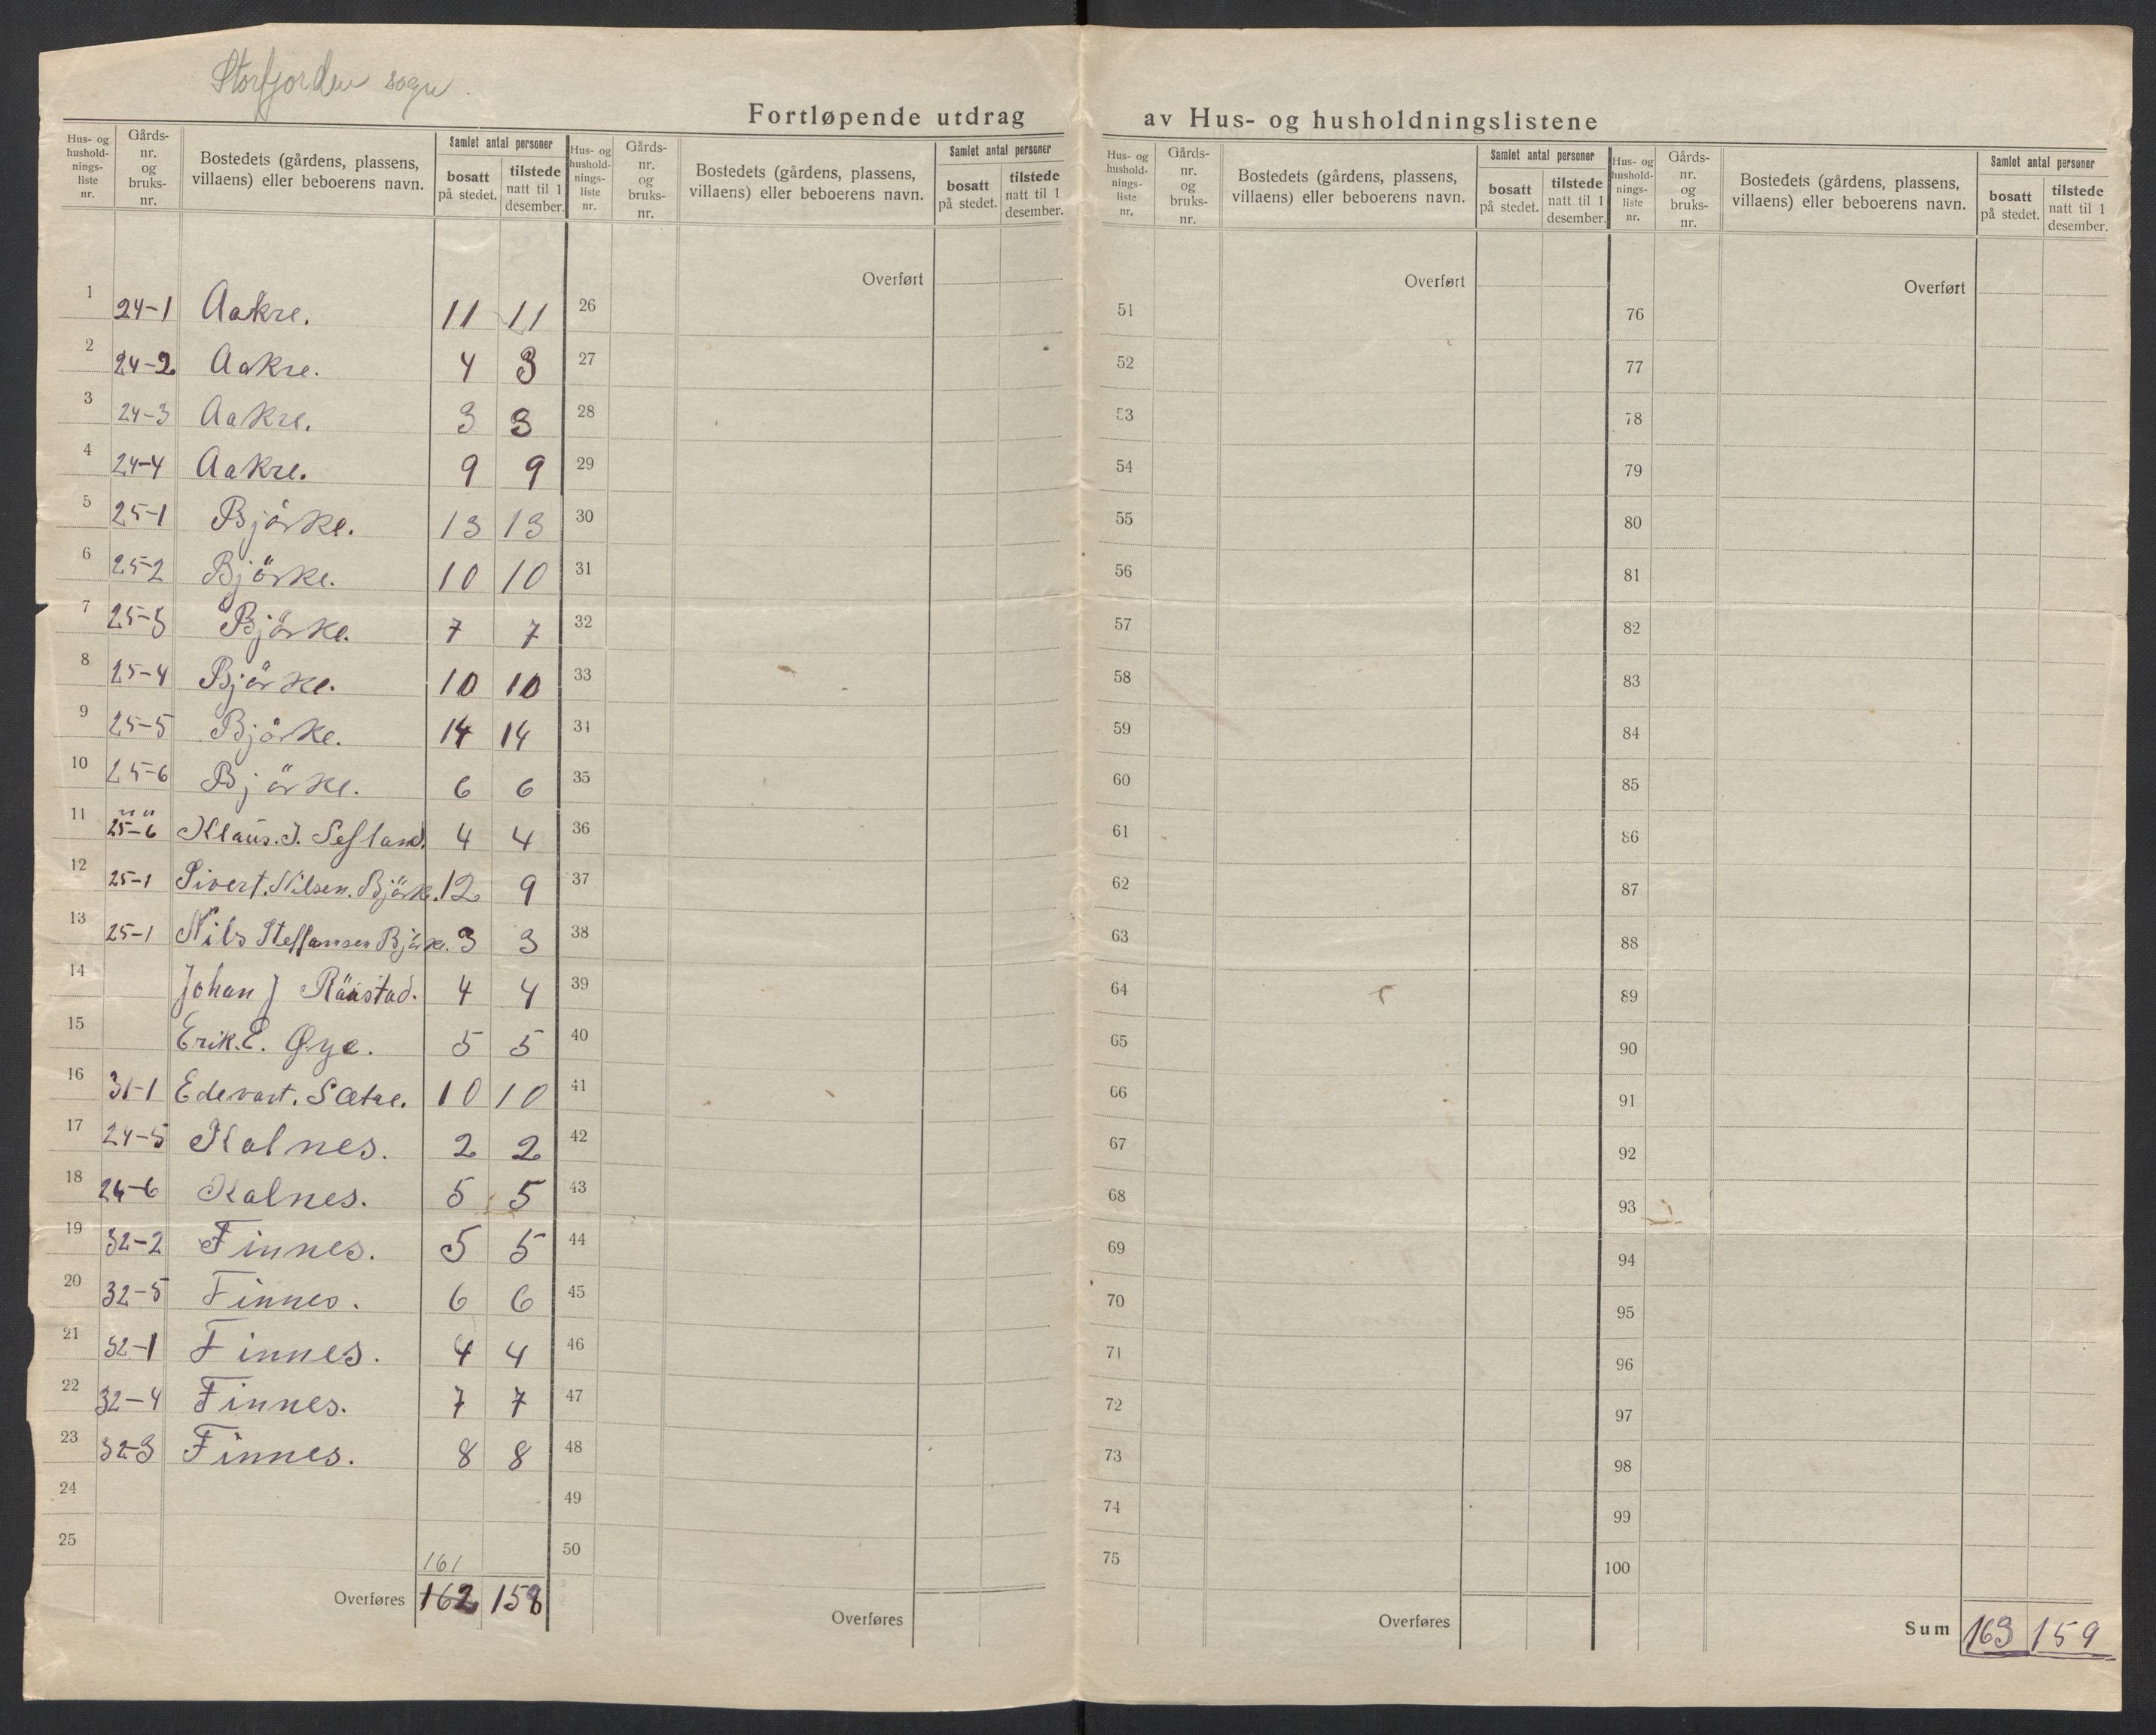 Storfjorden sogn.
Fortløpende utdrag av Hus- og husholdningslistene
Hus- og husholdnings-liste nr. | Gårds-nr. og bruks-nr. | Bostedets (gårdens, plassens, villaens) eller beboerens navn. | Samlet antal personer: bosatt på stedet. | tilstede natt til 1 desember.
1 24-1 Aakre. 11 11
2 24-2 Aakre. 4 3
3 24-3 Aakre. 3 3
4 24-4 Aakre. 9 9
5 25-1 Björke. 13 13
6 25-2 Björke. 10 10
7 25-3 Björke. 7 7
8 25-4 Björke. 10 10
9 25-5 Björke. 14 14
10 25-6 Björke. 6 6
11 25-6 Klaus. J. Sefland. 4 4
12 25-1 Sivert. Nilsen. Björke. 12 9
13 25-1 Nils Steffansen Björke. 3 3
14 Johan J 4 4
15 Erik. E. Øye. 5 5
16 31-1 Edevart. Sætre. 10 10
17 24-5 Kalnes. 2 2
18 24-6 Kalnes. 5 5
19 32-2 Finnes. 5 5
20 32-5 Finnes. 6 6
21 32-1 Finnes. 4 4
22 32-4 Finnes. 7 7
23 32-3 Finnes. 8 8
24
25
161
Overføres 162 158
Hus- og husholdnings-liste nr. | Gårds-nr. og bruks-nr. | Bostedets (gårdens, plassens, villaens) eller beboerens navn. | Samlet antal personer: bosatt på stedet. | tilstede natt til 1 desember.
Overført
26
27
28
29
30
31
32
33
34
35
36
37
38
39
40
41
42
43
44
45
46
47
48
49
50
Overføres
Hus- og husholdnings-liste nr. | Gårds-nr. og bruks-nr. | Bostedets (gårdens, plassens, villaens) eller beboerens navn. | Samlet antal personer: bosatt på stedet. | tilstede natt til 1 desember.
Overført
51
52
53
54
55
56
57
58
59
60
61
62
63
64
65
66
67
68
69
70
71
72
73
74
75
Overføres
Hus- og husholdnings-liste nr. | Gårds-nr. og bruks-nr. | Bostedets (gårdens, plassens, villaens) eller beboerens navn. | Samlet antal personer: bosatt på stedet. | tilstede natt til 1 desember.
Overført
76
77
78
79
80
81
82
83
84
85
86
87
88
89
90
91
92
93
94
95
96
97
98
99
100
Sum 163 159